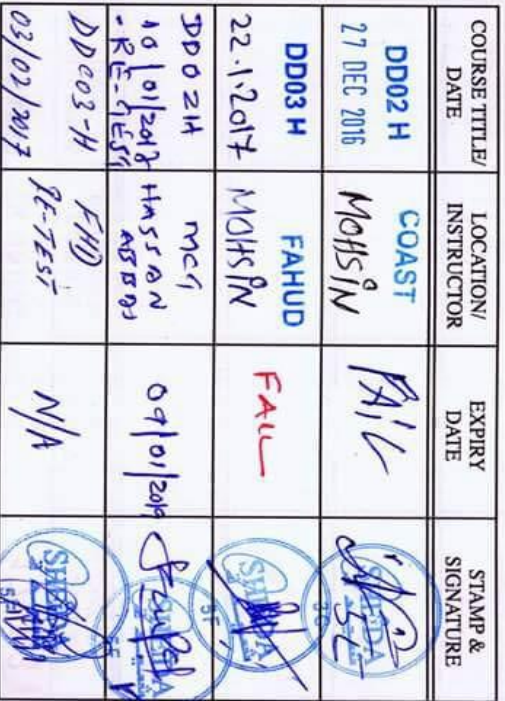 COURSE TITLE/
DATE
LOCATION/
INSTRUCTOR
EXPIRY
DATE
STAMP &
SIGNATURE
DD02 H
27 DEC 2016
COAST
MOHSIN
FAIL
DD03 H
22.1.2017
FAHUD
MOHSIN
FAIL
SHEIDA
DD02H
10/01/2017
-RE-TEST
HASSAN
DD003-H
03/02/2017
FHD
RE-TEST
N/A